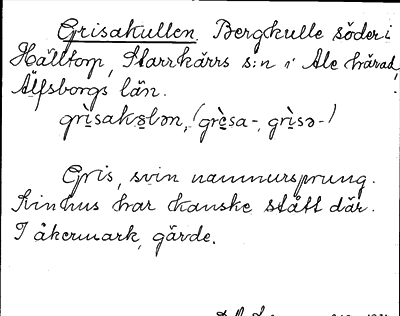 Grisakullen. Bergkulle söder i
Hälltorp, Starrkärrs s:n i Ale härad,
Älfsborgs län.
grìsakələn, (grèsa-, grìsə-)
Gris, svin namnursprung.
Svinhus har kanske stått där.
I åkermark, gärde.